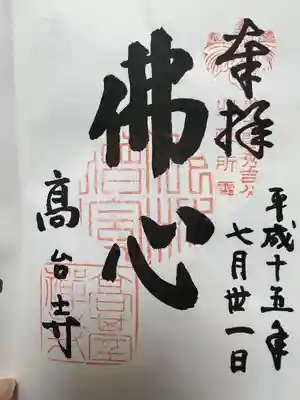 奉拝
平成十五年
七月丗一日
佛心
高台寺